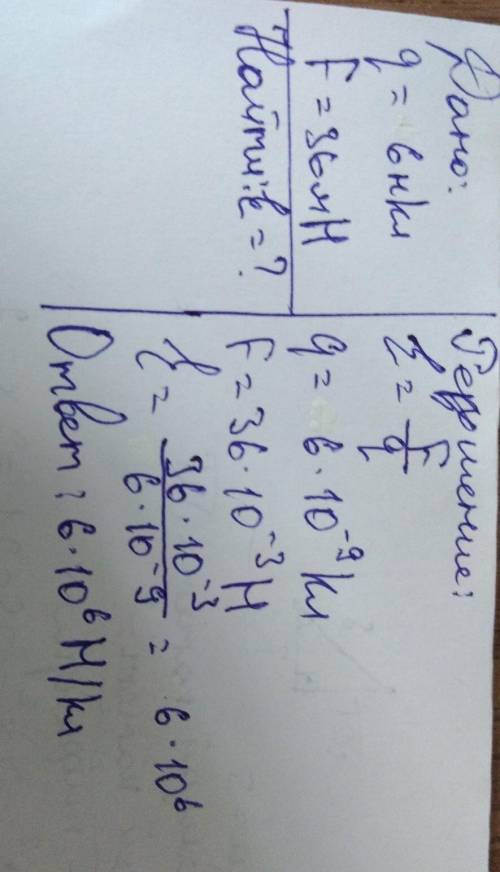 Дано:
q = 6 нкл
F = 36 мН
Найти: E = ?
Решение:
E = F/q
q = 6 · 10⁻⁹ кл
F = 36 · 10⁻³ Н
E = 36 · 10⁻³ / 6 · 10⁻⁹ = 6 · 10⁶
Ответ: 6 · 10⁶ Н/кл